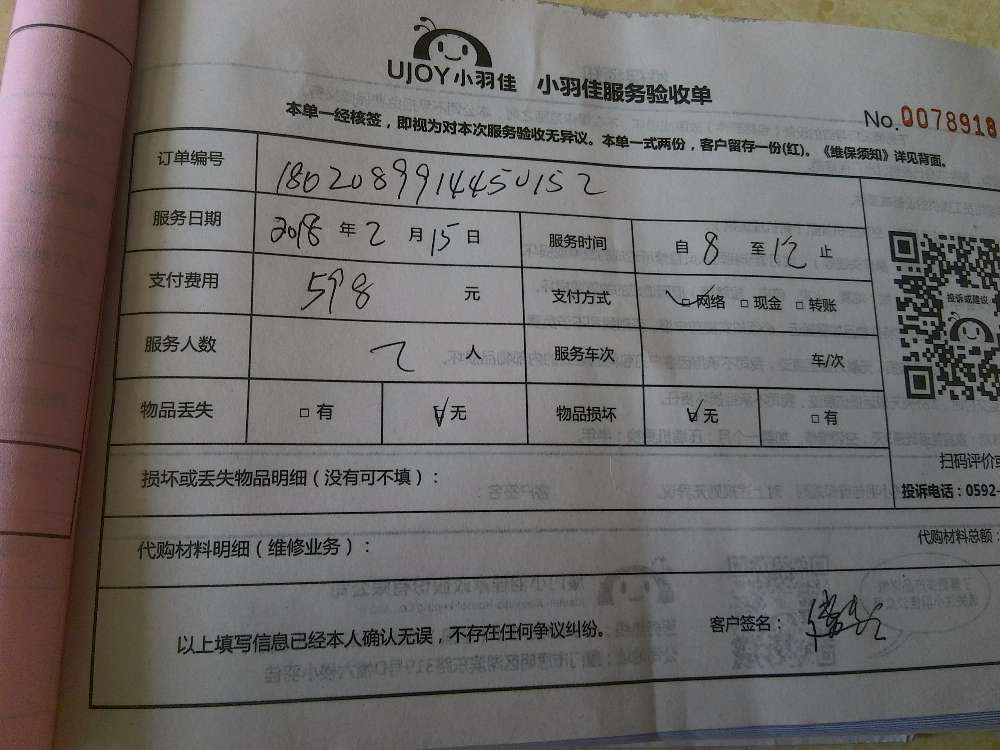 UJOY小羽佳 小羽佳服务验收单
No.0078918
本单一经核签，即视为对本次服务验收无异议。本单一式两份，客户留存一份(红)。《维保须知》详见背面。
订单编号 180208991445152
服务日期 2018年2月15日 服务时间 自8至12止
支付费用 598元 支付方式 □网络 □现金 □转账
服务人数 2人 服务车次 车/次
物品丢失 □有 □无 物品损坏 □无 □有
投诉或建议
扫码评价或
投诉电话：0592-
损坏或丢失物品明细（没有可不填）：
代购材料明细（维修业务）：
代购材料总额：
以上填写信息已经本人确认无误，不存在任何争议纠纷。 客户签名：